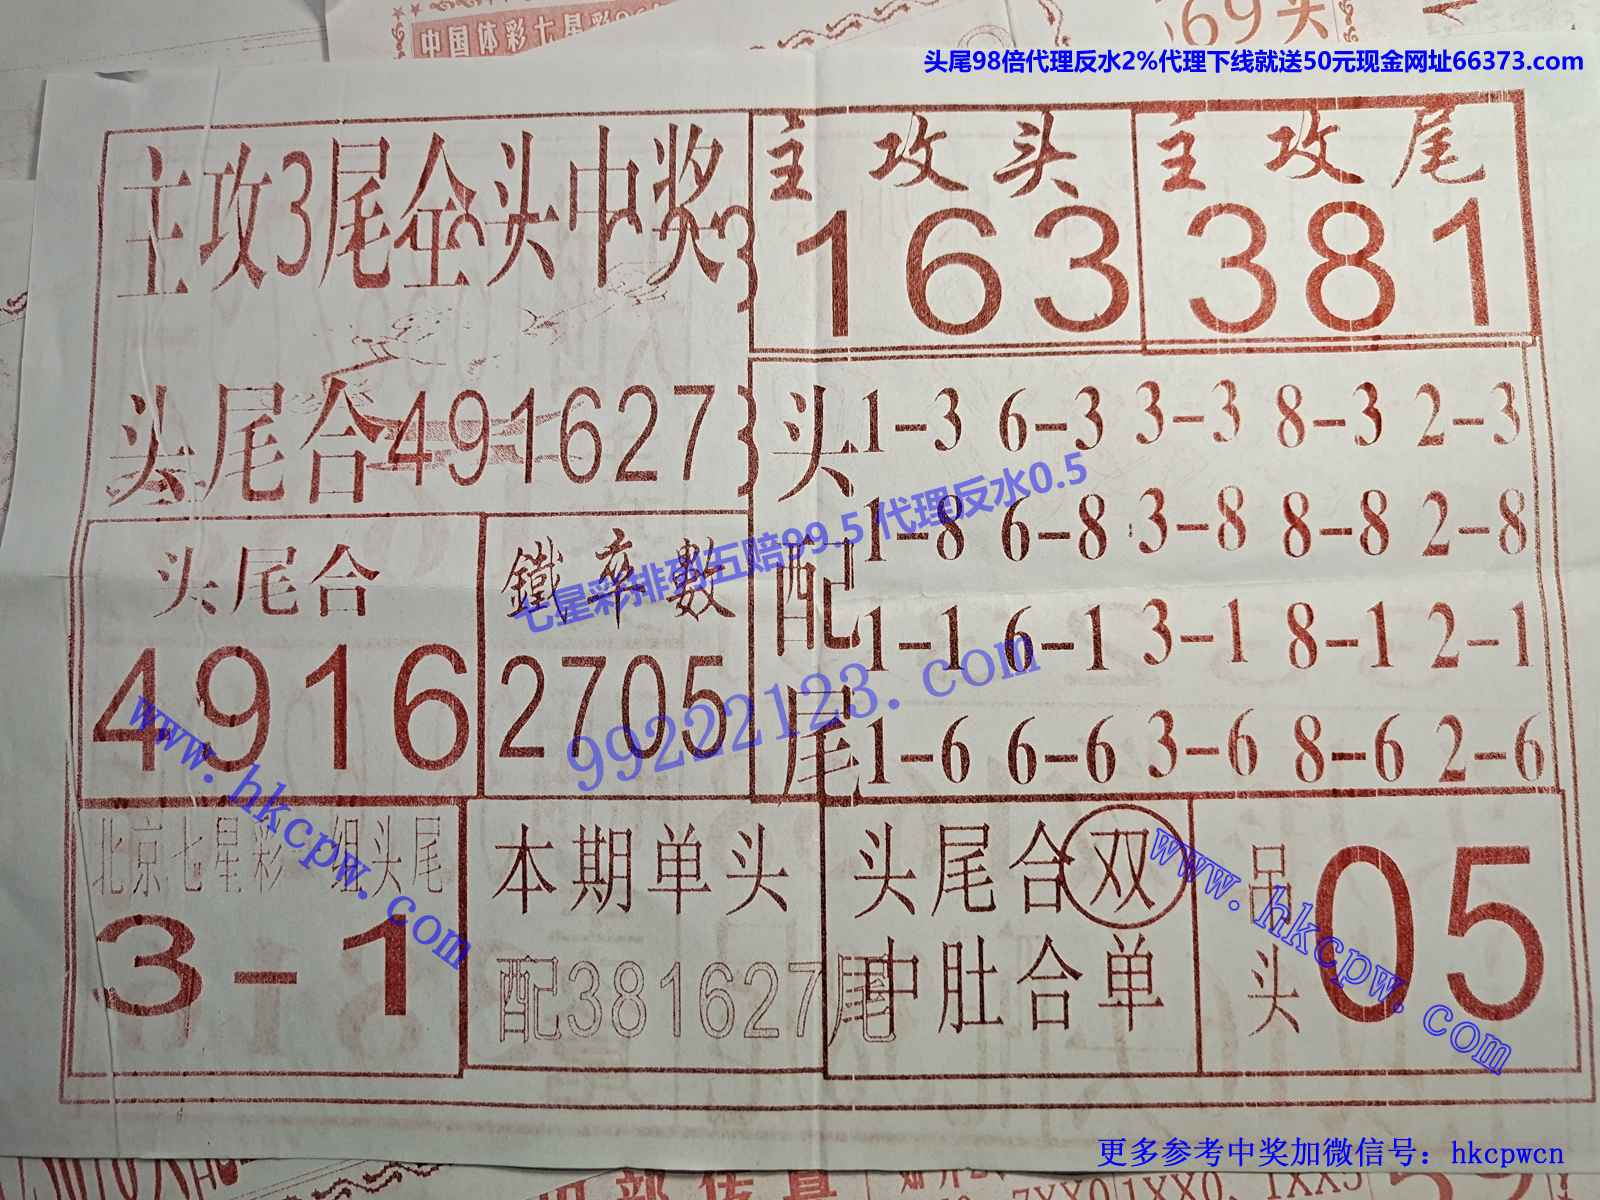 中国体彩七星彩
69头
头尾98倍代理反水2%代理下线就送50元现金网址66373.com
主攻3尾全头中奖
主攻头
163
主攻尾
381
头尾合491627
头配尾
1-3 6-3 3-3 8-3 2-3
1-8 6-8 3-8 8-8 2-8
1-1 6-1 3-1 8-1 2-1
1-6 6-6 3-6 8-6 2-6
头尾合
4916
鐵卒數
2705
七星彩排列五赔99.5 代理反水0.5
99222123.com
www.hkcpw.com
北京七星彩一组头尾
3-1
本期单头
配381627尾
头尾合双
中肚合单
吊头
05
www.hkcpw.com
更多参考中奖加微信号：hkcpwcn